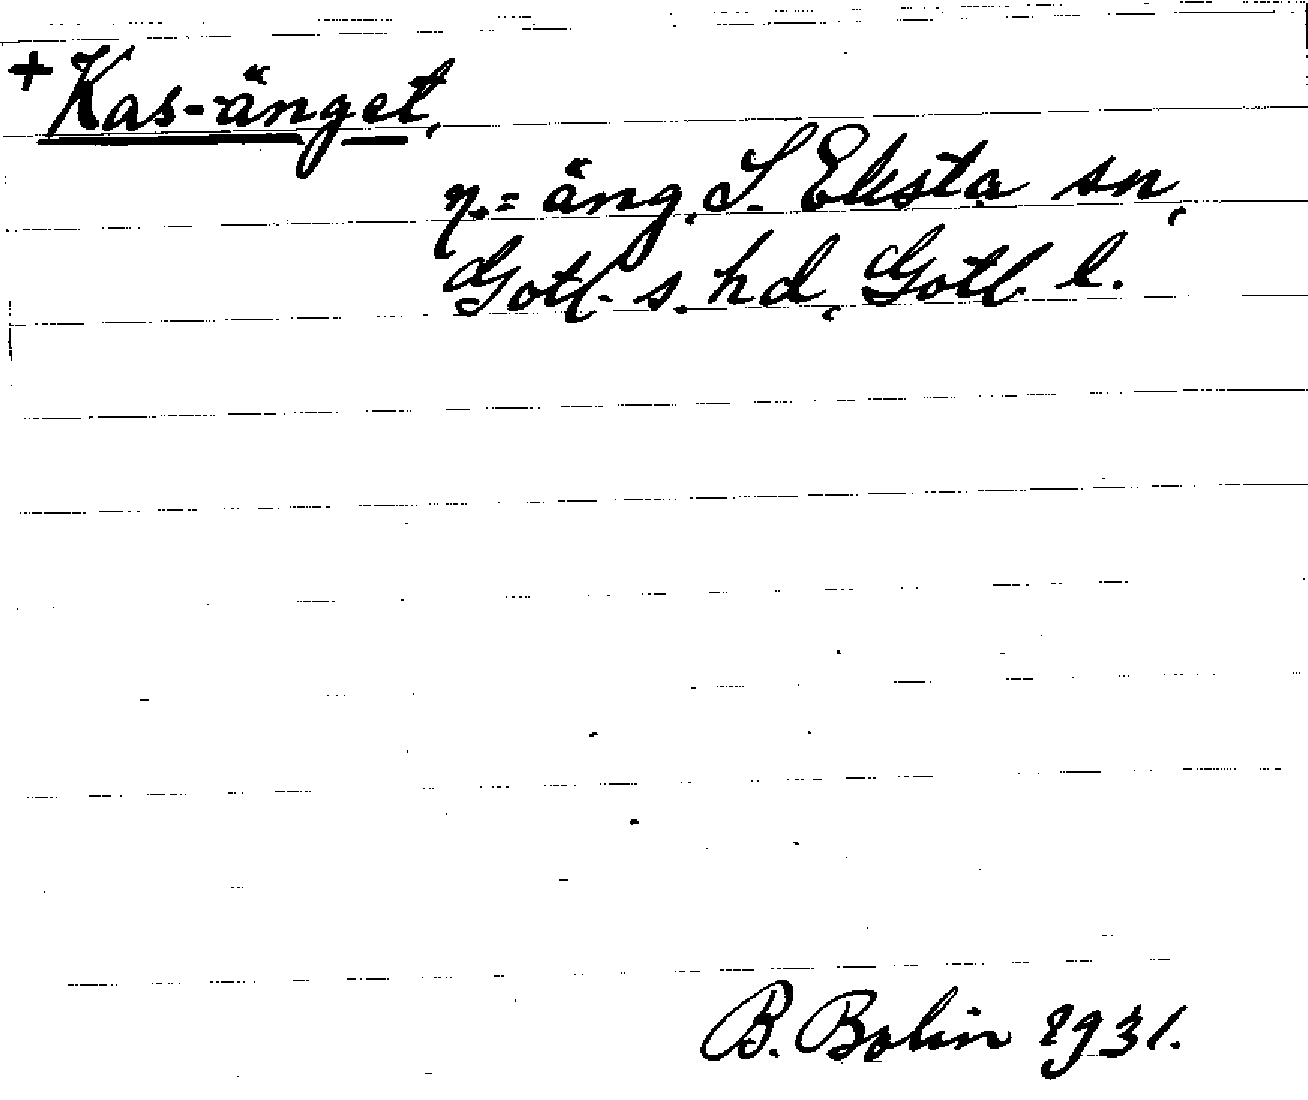 + Kas-änget,
n.= äng. S. Eksta sn,
Gotl. s. hd, Gotl. l.
B. Bolin 1931.